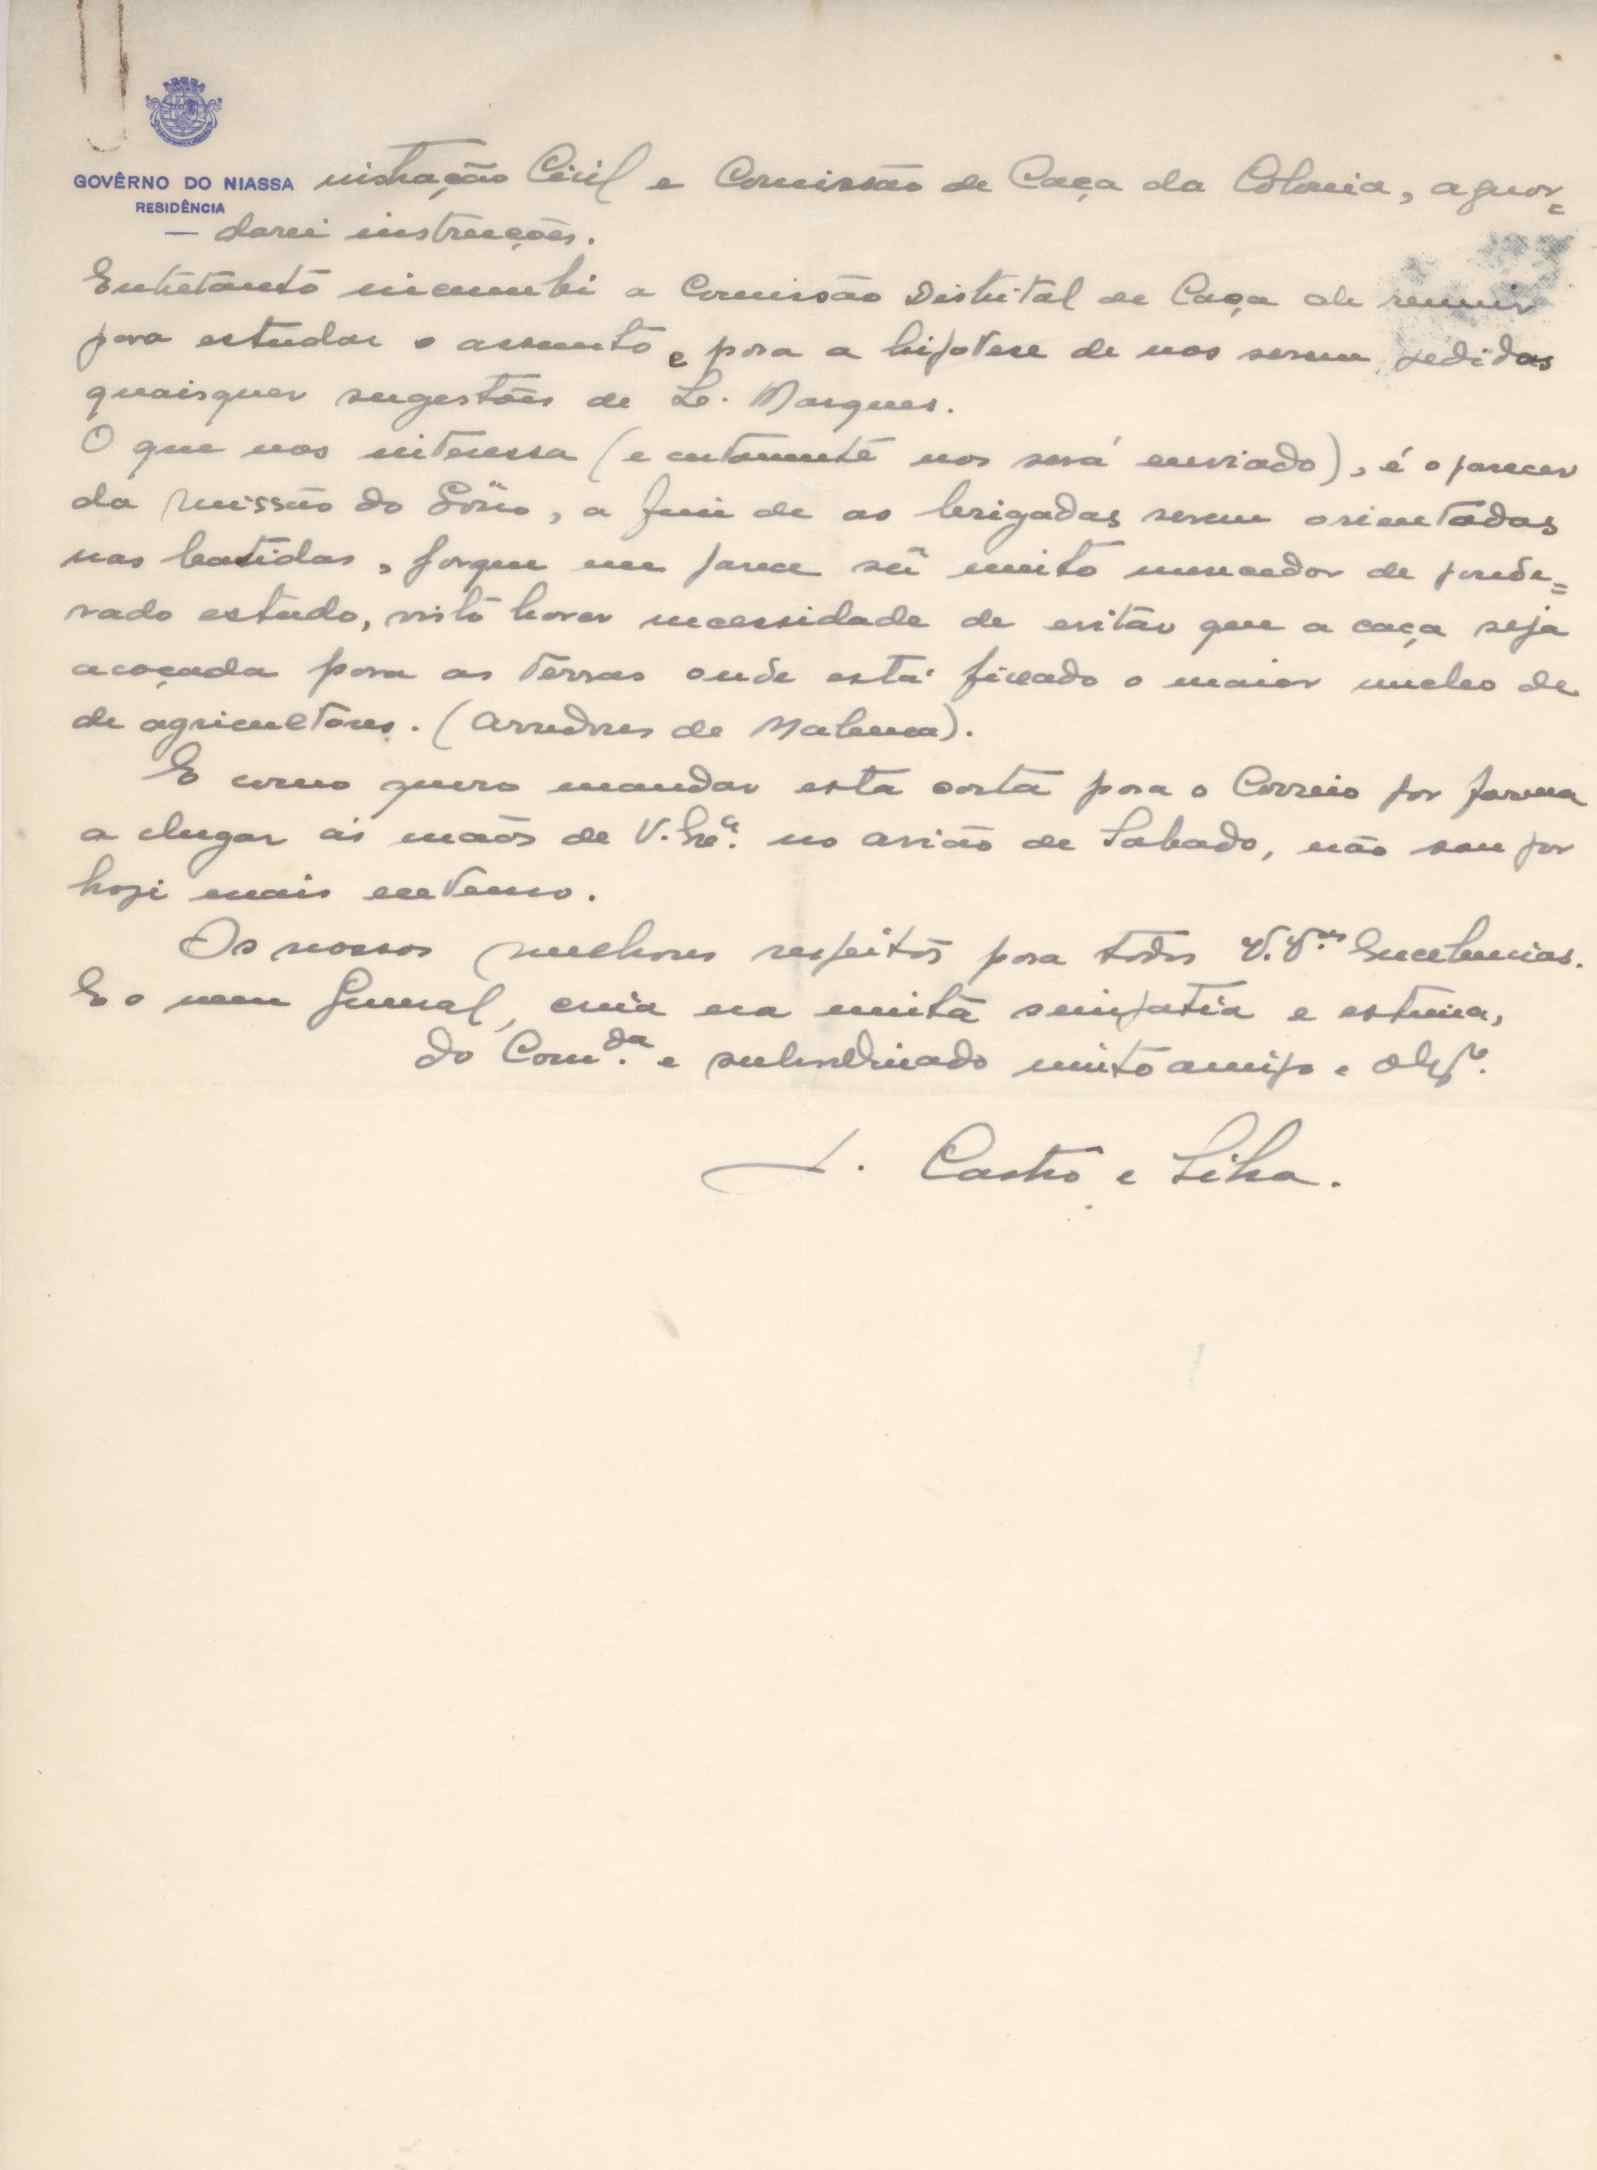 GOVÊRNO DO NIASSA
RESIDÊNCIA
nistração Civil e Comissão de Caça da Colonia, aguar=
— darei instruções.
Entretanto incumbi a Comissão Distrital de Caça de reunir
para estudar o assunto e para a hipotese de nos serem pedidas
quaisquer sugestões de L. Marques.
O que nos interessa (e certamente nos será enviado), é o parecer
da Missão do Sôno, a fim de as brigadas serem orientadas
nas batidas, porque me parece ser muito merecedor de ponde=
rado estudo, visto haver necessidade de evitar que a caça seja
acoçada para as terras onde está fixado o maior nucleo de
de agricultores. (Arredores de Malema).
E como quero mandar esta carta para o Correio por forma
a chegar ás mãos de V. Exª. no avião de Sabado, não sou por
hoje mais extenso.
Os nossos melhores respeitos para todos V.V.as Excelencias.
E o meu General, creia na muita simpatia e estima,
do Com.da e subordinado muito amigo e obgº.
J. Castro e Silva.